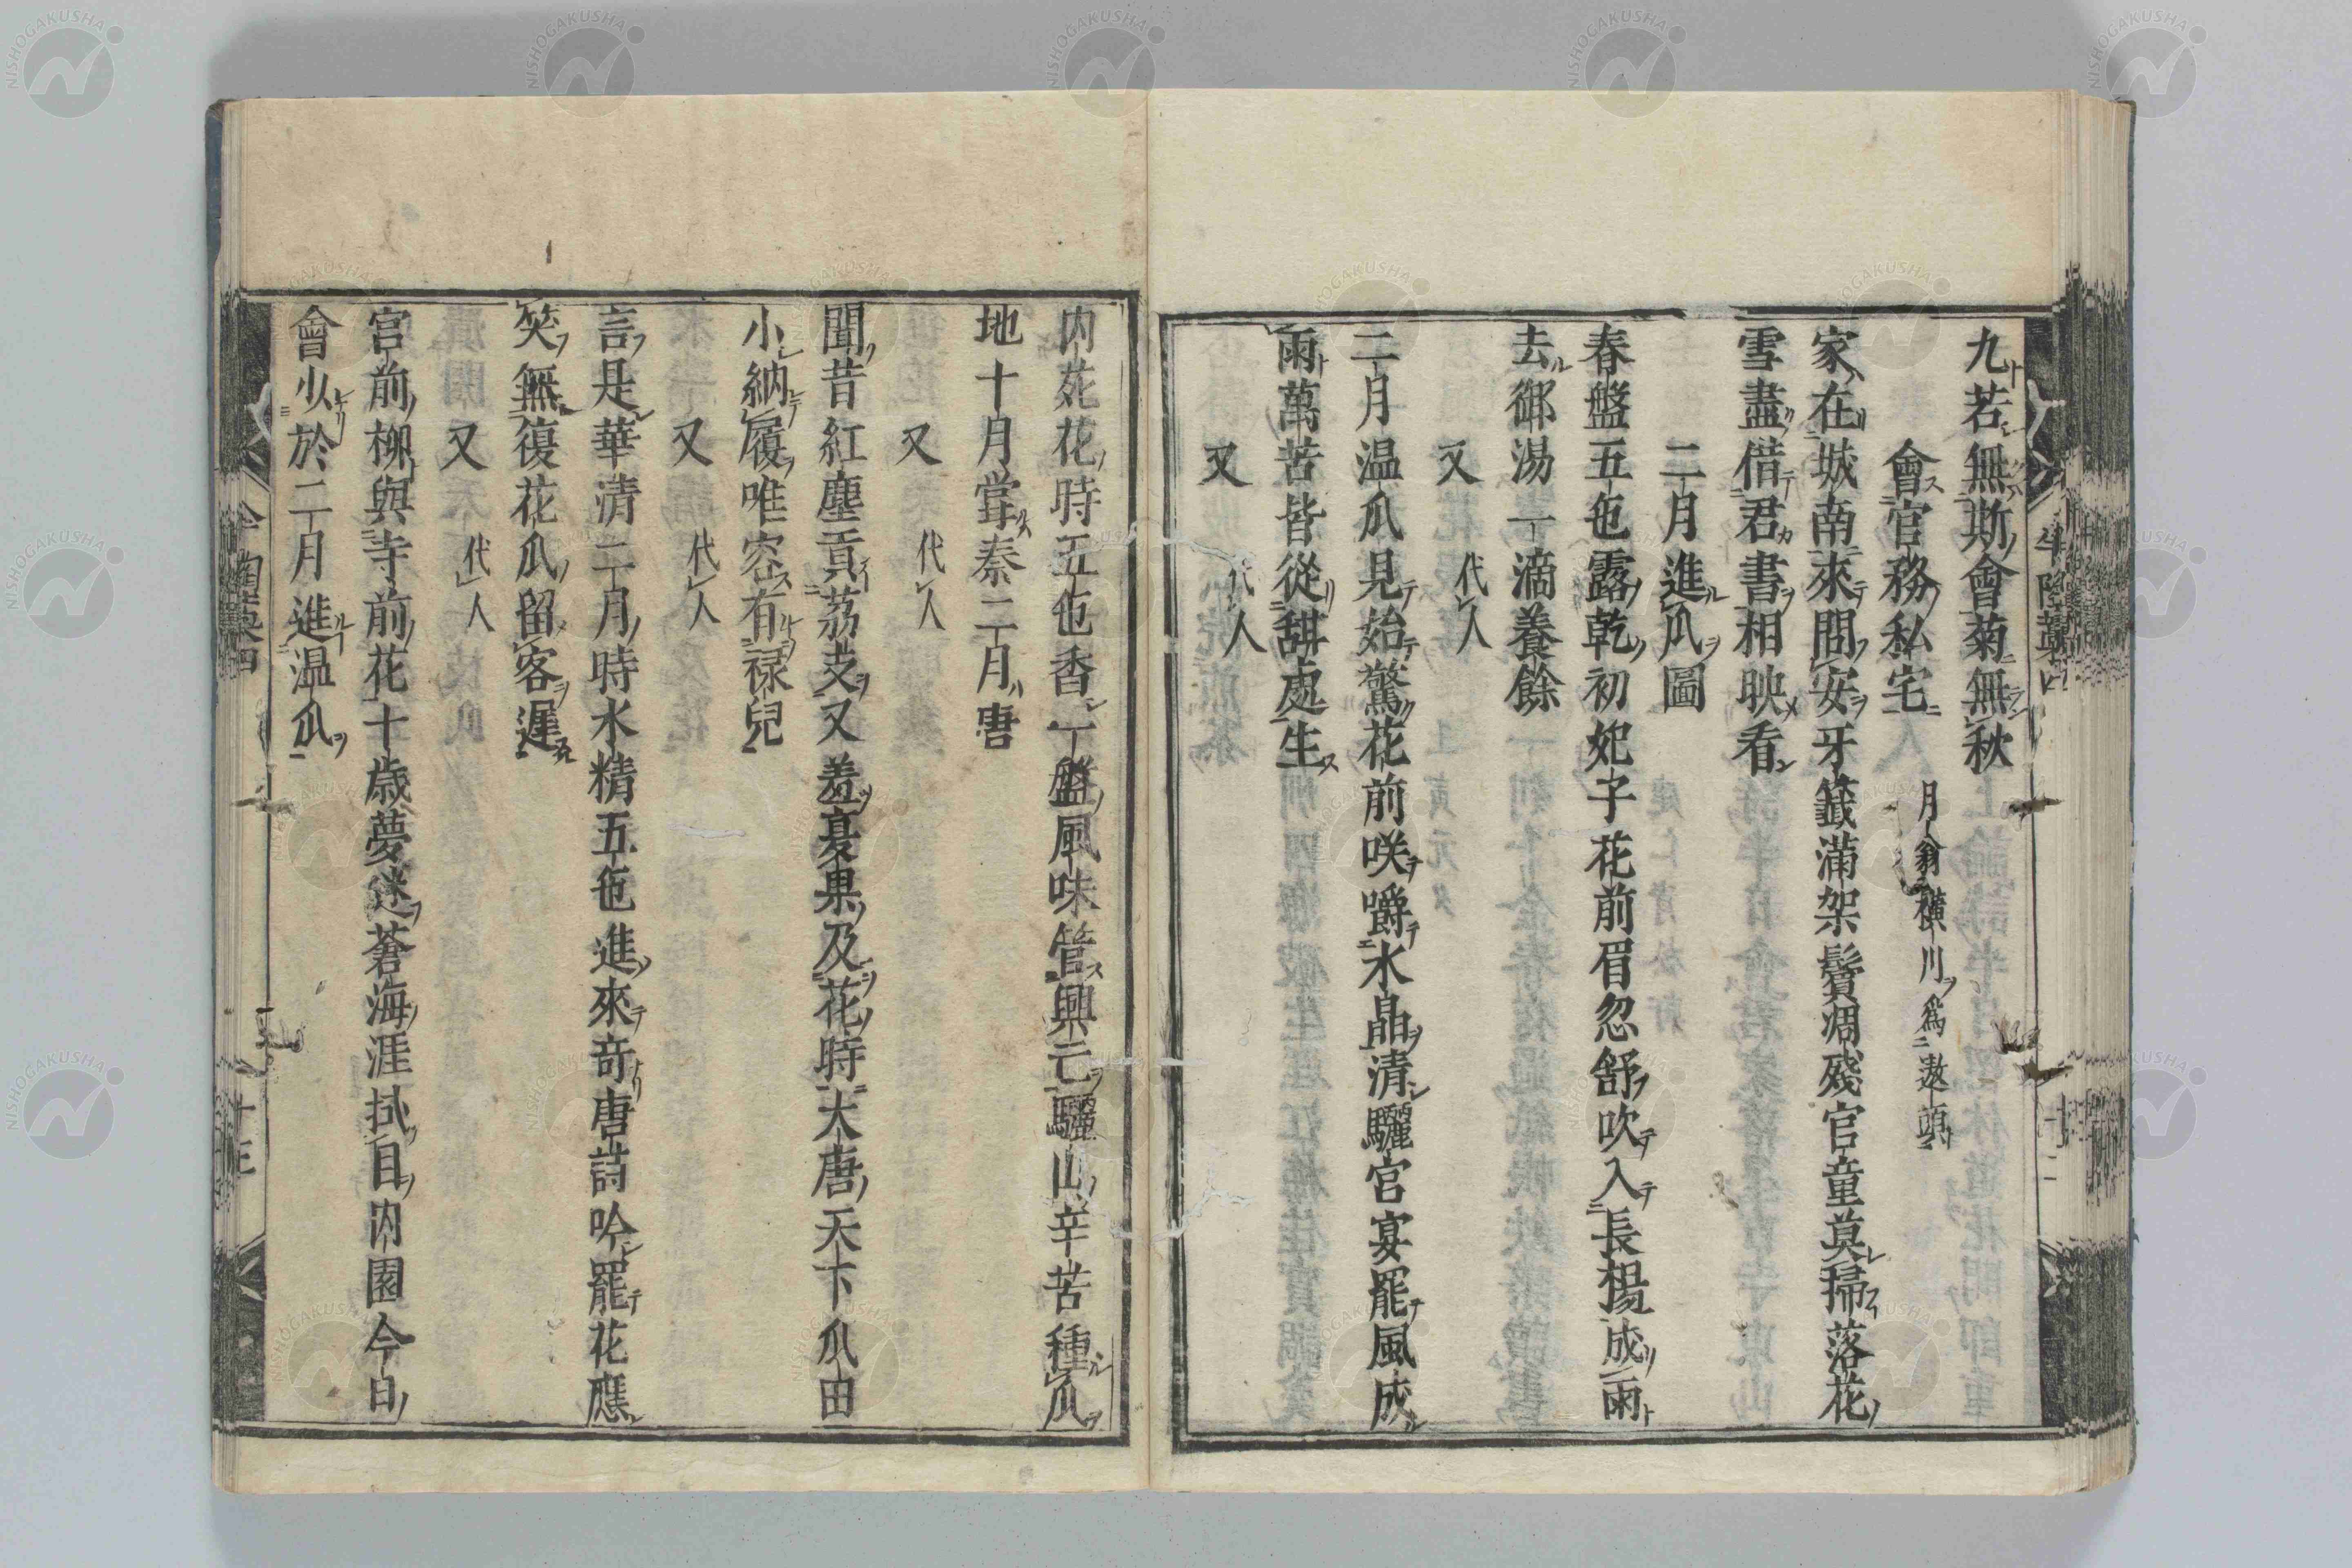 九若無斯會菊無秋
會官務私宅 月翁橫川爲遨頭
家在城南來問安牙籤滿架鬢凋殘官童莫掃落花
雪盡借君書相映看
二月進瓜圖
春盤五色露乾初妃子花前眉忽舒吹入長楊成雨
去鄉湯一滴養餘
又 代人
二月温瓜見始驚花前咲嚼水晶清驪宮宴罷風成
雨萬苦皆從甜處生
又 代人
内苑花時五色香一盤風味管興亡驪山辛苦種瓜
地十月嘗秦二月唐
又 代人
聞昔紅塵貢荔支又羞夏果及花時大唐天下瓜田
小納履唯容有禄兒
又 代人
言是華清二月時水精五色進來奇唐詩吟罷花應
笑無復花瓜留客遲
又 代人
宮前柳與寺前花十歳夢迷蒼海涯拭目内園今日
會似於二月進温瓜
NISHOGAKUSHA